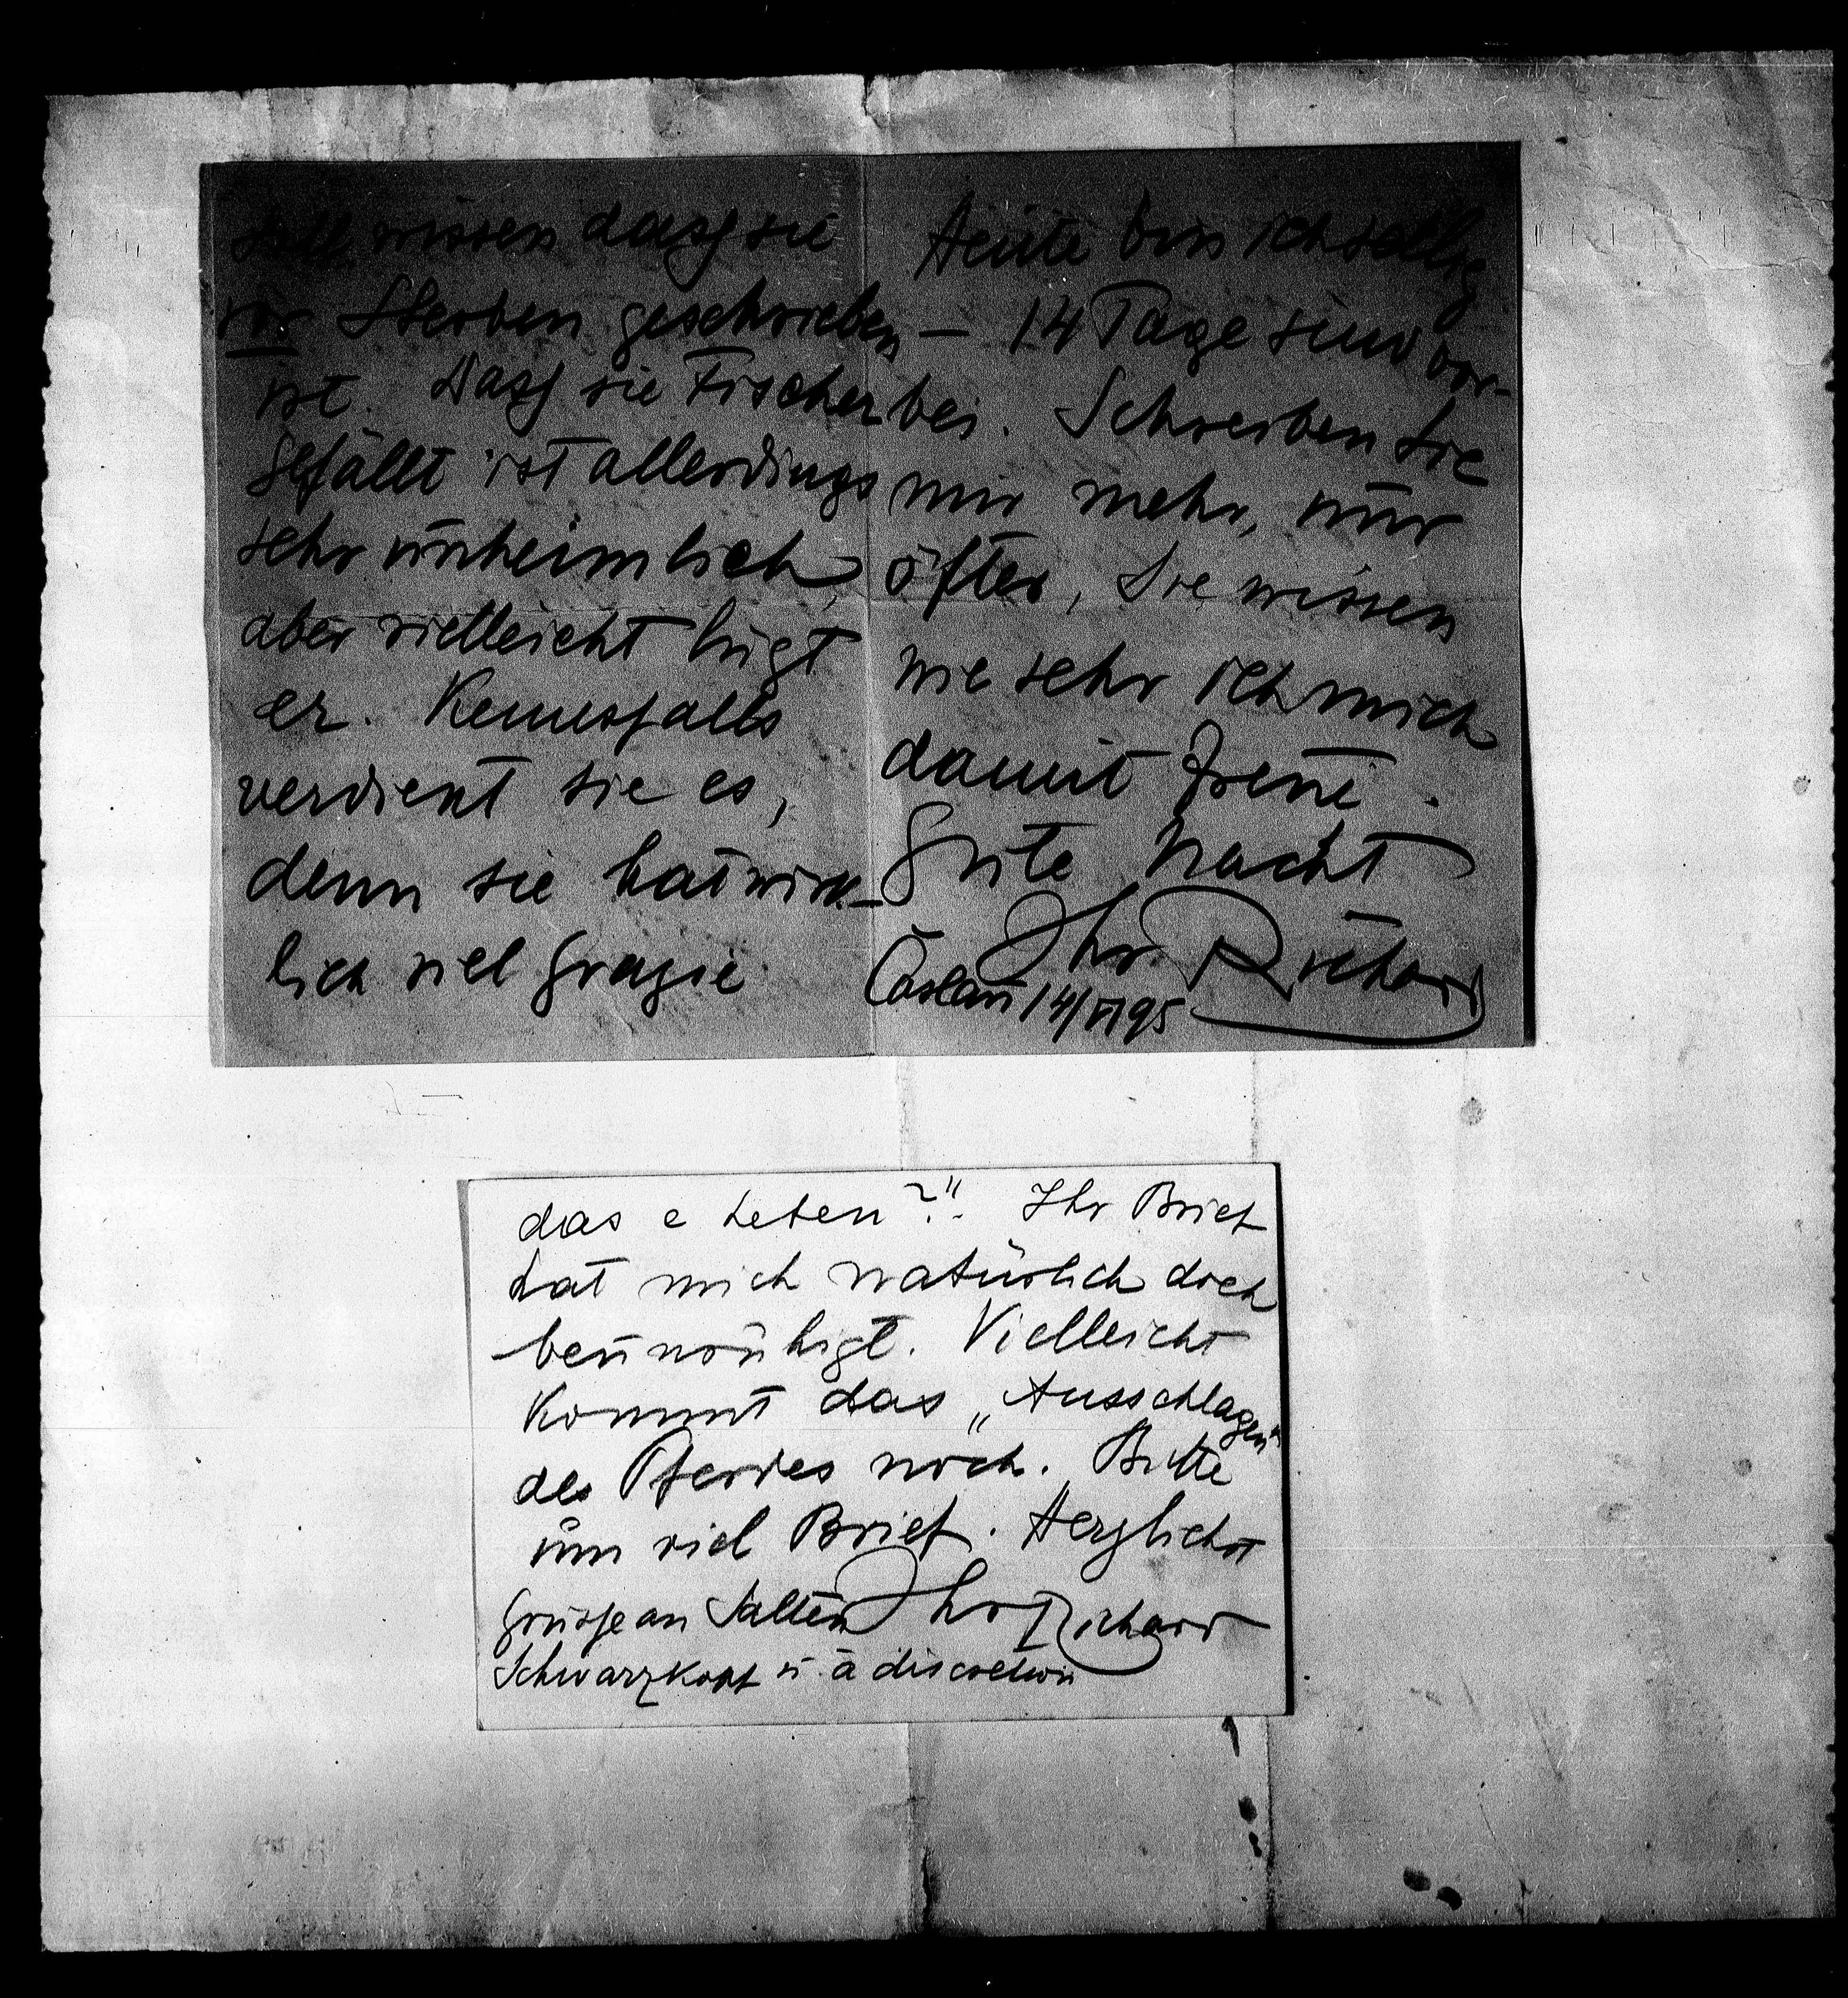 soll wissen dass sie
vor Sterben geschrieben
ist. Dass sie Fischer
gefällt ist allerdings
sehr unheimlich,
aber vielleicht lügt
er. Keinesfalls
verdient sie es,
denn sie hat wirk-
lich viel Grazie
Heute bin ich selig
– 14 Tage sind vor-
bei. Schreiben Sie
mir mehr, nur
öfter, Sie wissen
wie sehr ich mich
damit freue.
Gute Nacht
Ihr Richard
Časlau 14/VI 95
das e Leben?" Ihr Brief
hat mich natürlich doch
beunruhigt. Vielleicht
kommt das „Ausschlagen"
des Pferdes noch. Bitte
um viel Brief. Herzlichst
Grüsse an Salten Ihr Richard
Schwarzkopf u. à discretion